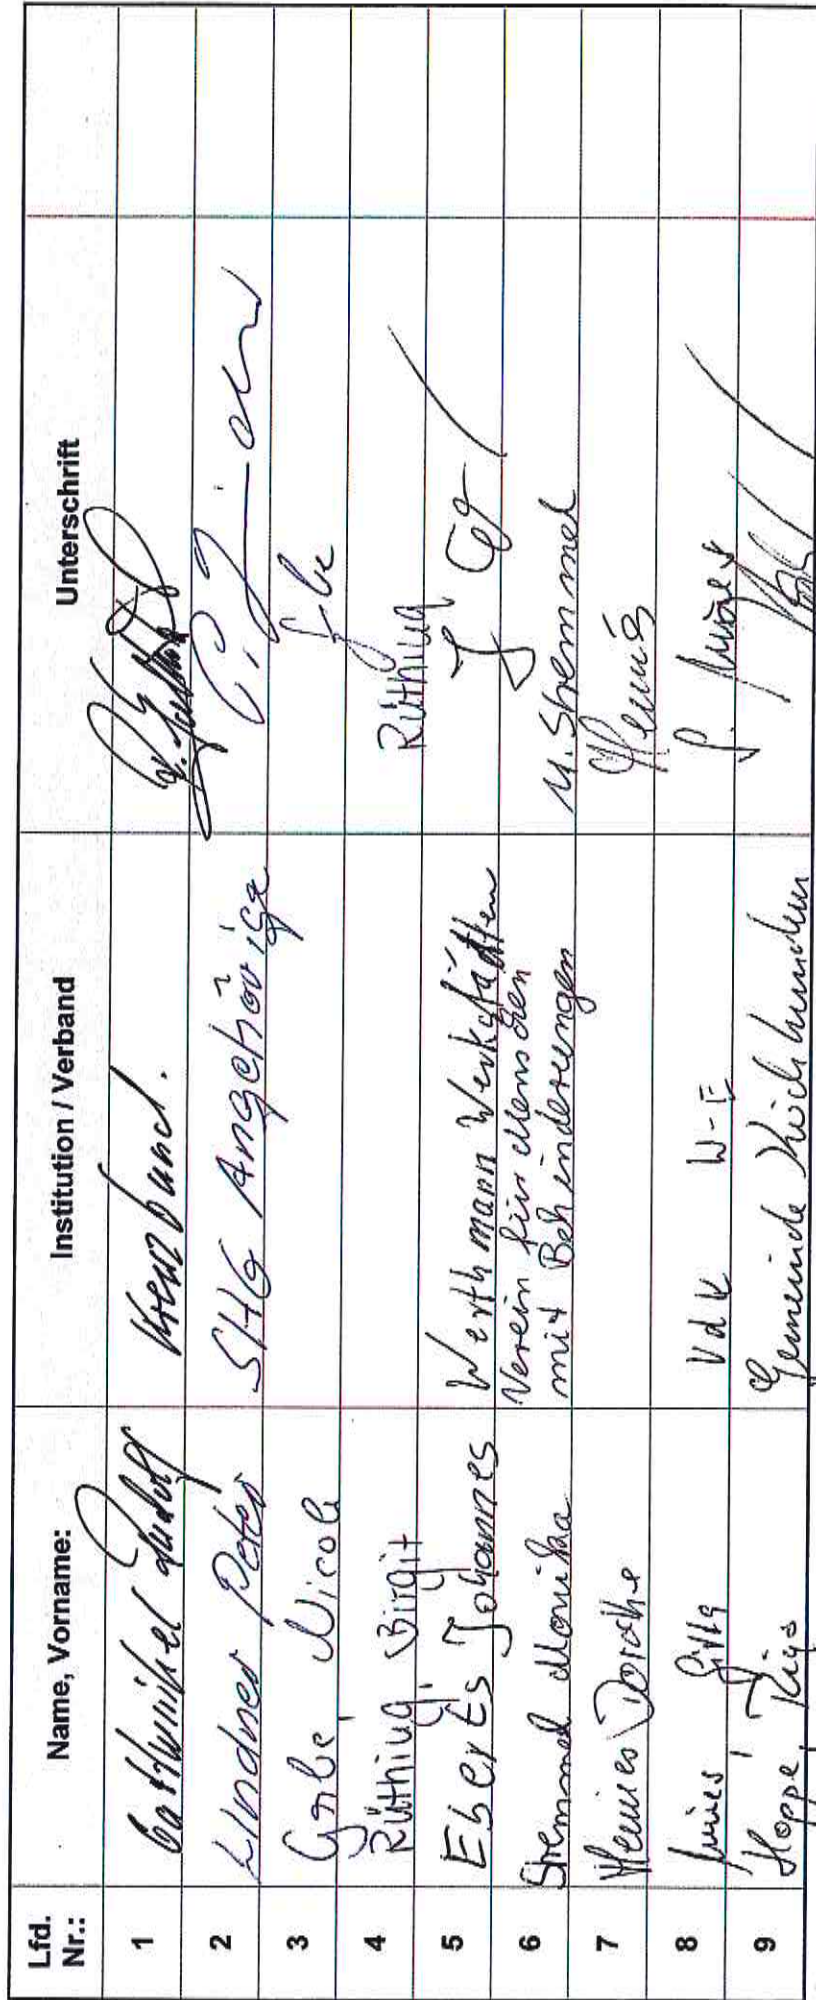 Lfd. Nr.: Name, Vorname: Institution / Verband Unterschrift
1 Rudolf Kreuzbund.
2 Lindner Peter SHG Angehörige
3 Nicole
4 Rüthing, Birgit Rüthing
5 Eberts Johannes Werthmann Werkstätten
6 Stremmel Monika Verein für Menschen
mit Behinderungen M. Stremmel
7 Dorothe
8 Gitta VdK W-E
9 Hoppe, Gemeinde Kirchhundem